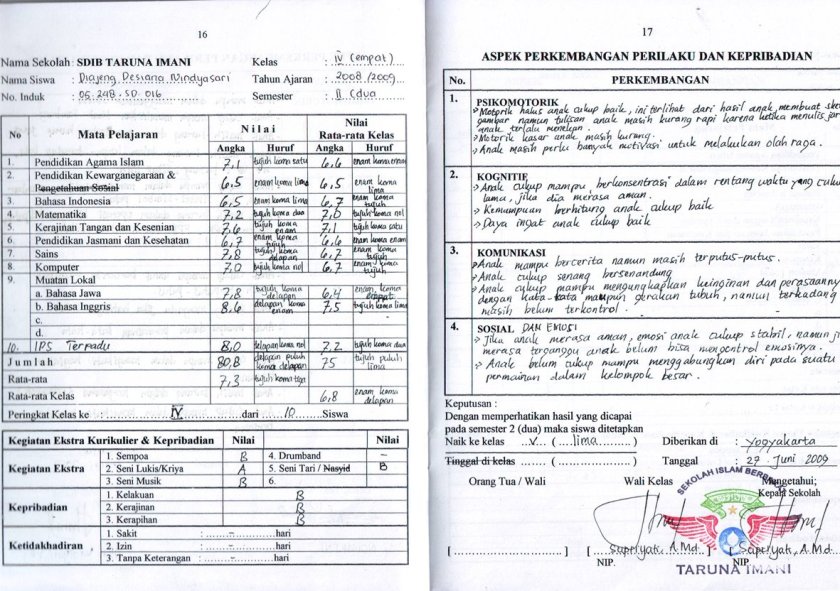 16
Nama Sekolah : SDIB TARUNA IMANI Kelas : IV (empat)
Nama Siswa : Diajeng Desiana Windyasari Tahun Ajaran : 2008/2009
No. Induk : 05.248.SD.016 Semester : II (dua)
No Mata Pelajaran Nilai Nilai Rata-rata Kelas
Angka Huruf Angka Huruf
1. Pendidikan Agama Islam 7,1 tujuh koma satu 6,6 enam koma enam
2. Pendidikan Kewarganegaraan & Pengetahuan Sosial 6,5 enam koma lima 6,5 enam koma lima
3. Bahasa Indonesia 6,5 enam koma lima 6,7 enam koma tujuh
4. Matematika 7,2 tujuh koma dua 7,0 tujuh koma nol
5. Kerajinan Tangan dan Kesenian 7,6 tujuh koma enam 7,1 tujuh koma satu
6. Pendidikan Jasmani dan Kesehatan 6,7 enam koma tujuh 6,6 enam koma enam
7. Sains 7,8 tujuh koma delapan 6,7 enam koma tujuh
8. Komputer 7,0 tujuh koma nol 6,7 enam koma tujuh
9. Muatan Lokal
a. Bahasa Jawa 7,8 tujuh koma delapan 6,4 enam koma empat
b. Bahasa Inggris 8,6 delapan koma enam 7,5 tujuh koma lima
c.
d.
10. IPS Terpadu 8,0 delapan koma nol 7,2 tujuh koma dua
Jumlah 80,8 delapan puluh koma delapan 75 tujuh puluh lima
Rata-rata 7,3 tujuh koma tiga
Rata-rata Kelas 6,8 enam koma delapan
Peringkat Kelas ke : IV dari 10 Siswa
Kegiatan Ekstra Kurikulier & Kepribadian Nilai Nilai
Kegiatan Ekstra 1. Sempoa B 4. Drumband –
2. Seni Lukis/Kriya A 5. Seni Tari / Nasyid B
3. Seni Musik B 6.
Kepribadian 1. Kelakuan B
2. Kerajinan B
3. Kerapihan B
Ketidakhadiran 1. Sakit : – hari
2. Izin : – hari
3. Tanpa Keterangan : – hari
17
ASPEK PERKEMBANGAN PERILAKU DAN KEPRIBADIAN
No. PERKEMBANGAN
1. PSIKOMOTORIK
Motorik halus anak cukup baik, ini terlihat dari hasil anak membuat
gambar namun tulisan anak masih kurang rapi karena ketika menulis
anak terlalu menekan.
Motorik kasar anak masih kurang.
Anak masih perlu banyak motivasi untuk melakukan olah raga.
2. KOGNITIF
Anak cukup mampu berkonsentrasi dalam rentang waktu yang
lama, jika dia merasa aman.
Kemampuan berhitung anak cukup baik
Daya ingat anak cukup baik
3. KOMUNIKASI
Anak mampu bercerita namun masih terputus-putus.
Anak cukup senang bersenandung
Anak cukup mampu mengungkapkan keinginan dan
dengan kata-kata maupun gerakan tubuh, namun terkadang
masih belum terkontrol.
4. SOSIAL DAN EMOSI
Jika anak merasa aman, emosi anak cukup stabil, namun
merasa terganggu anak belum bisa mengontrol emosinya.
Anak belum cukup mampu menggabungkan diri pada suatu
permainan dalam kelompok besar.
Keputusan :
Dengan memperhatikan hasil yang dicapai
pada semester 2 (dua) maka siswa ditetapkan
Naik ke kelas V (lima) Diberikan di : Yogyakarta
Tinggal di kelas ........ (....................) Tanggal : 27 Juni 2009
Orang Tua / Wali Wali Kelas Mengetahui;
Kepala Sekolah
SEKOLAH ISLAM
[..............................] [Supriyati, A.Md] [Supriyati, A.Md.
NIP. NIP.
TARUNA IMANI